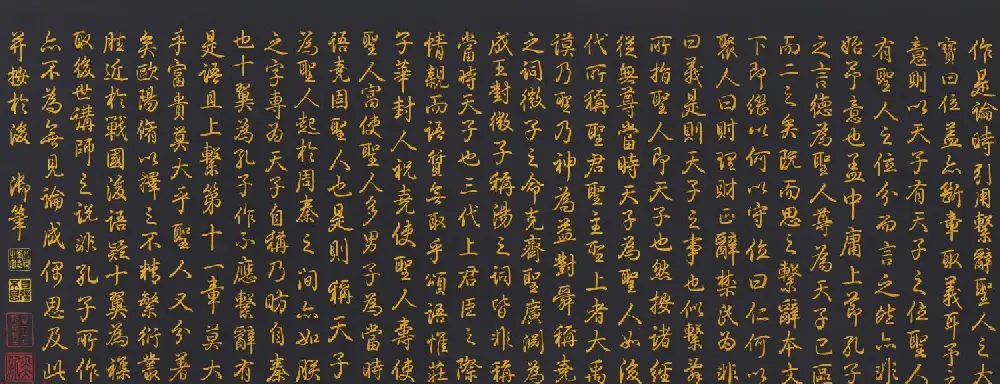 作是論時引用繫辭聖人之大
寶曰位蓋亦斷章取義耳予之
意則以天子有天子之位聖人
有聖人之位分而言之然亦非
始予意也蓋中庸上節孔子
之言德為聖人尊為天子已區
而二之矣既而思之繫辭本文
下即繼以何以守位曰仁何以
聚人曰財理財正辭禁民為非
曰義是則天子之事也似繫辭
所指聖人即天子也然搜諸經
從無尊當時天子為聖人如後
代所稱聖君聖主聖上者大禹
謨乃聖乃神為益對舜稱堯
之詞微子之命克齊聖廣淵為
成王對微子稱湯之詞皆非稱
當時天子也三代上君臣之際
情親而語質無取乎頌語惟莊
子華封人祝堯使聖人壽使
聖人富使聖人多男子為當時
語堯固聖人也是則稱天子
為聖人起於周秦之間亦如朕
之字專為天子自稱乃昉自秦
也十翼為孔子作不應繫辭有
是語且上繫第十一章莫大
乎富貴莫大乎聖人又分著
矣歐陽脩以釋之不精繁衍叢
脞近於戰國後語疑十翼為雜
取後世講師之說非孔子所作
亦不為無見論成偶思及此
并於後 御筆